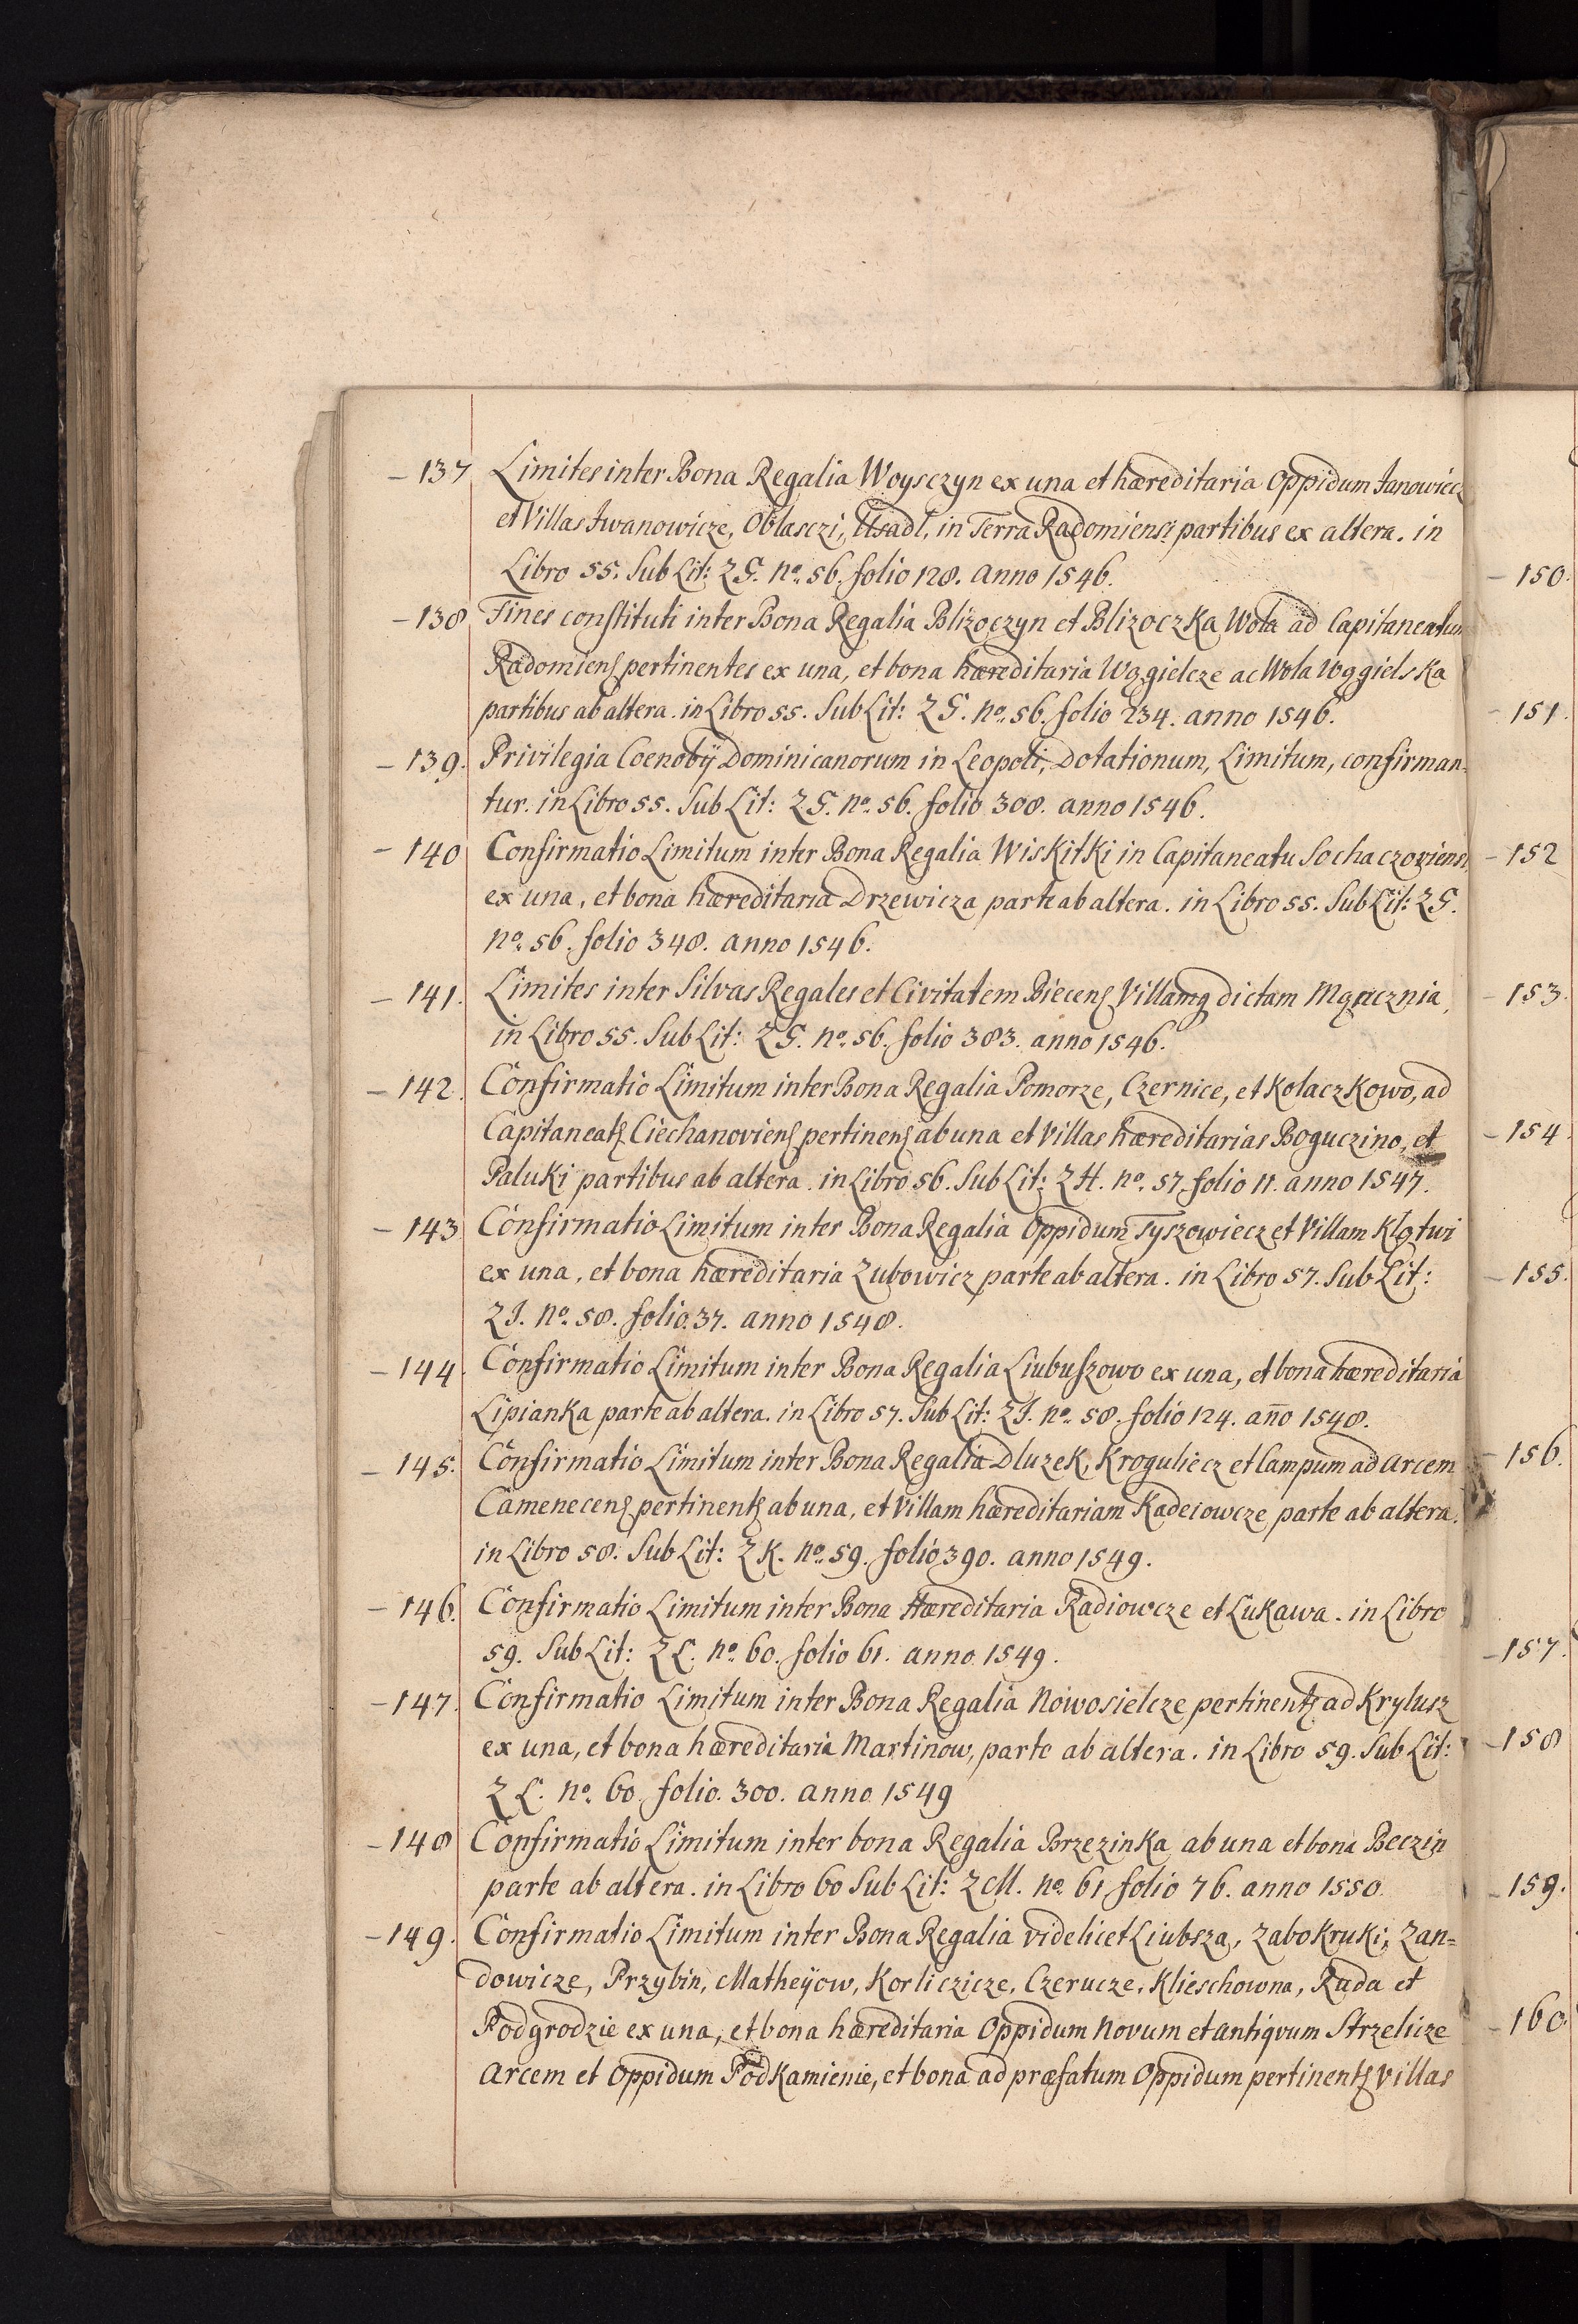 – 137 Limites inter Bona Regalia Woysczyn ex una et hæreditaria Oppidum Janowiecz
et Villas Jwanowicze, Oblasczi, Usadl, in Terra Radomiensi partibus ex altera. in
Libro 55. Sub Lit: ZG. no. 56. folio 128. anno 1546.
– 138 Fines constituti inter Bona Regalia Blizoczyn et Blizoczka Wola ad Capitaneatum
Radomiens pertinentes ex una, et bona hæreditaria Wągielcze ac Wola Wągielska
partibus ab altera. in Libro 55. Sub Lit: ZG. no. 56. folio 234. anno 1546.
– 139. Privilegia Coenobÿ Dominicanorum in Leopoli, Dotationum, Limitum, confirman=
tur. in Libro 55. Sub Lit: ZG. no. 56. folio 308. anno 1546.
– 140 Confirmatio Limitum inter Bona Regalia Wiskitki in Capitaneatu Sochaczoviensi
ex una, et bona hæreditaria Drzewicza parte ab altera. in Libro 55. Sub Lit: ZG.
no. 56. folio 348. anno 1546.
– 141. Limites inter Silvas Regales et Civitatem Biecens Villamq dictam
in Libro 55. Sub Lit: ZG. no. 56. folio 383. anno 1546.
– 142. Confirmatio Limitum inter Bona Regalia Pomorze, Czernice, et Kolaczkowo, ad
Capitaneatq Ciechanoviens pertinens ab una et Villas hæreditarias Boguczino, et
Paluki partibus ab altera. in Libro 56. Sub Lit: ZH. no. 57. folio 11. anno 1547.
– 143 Confirmatio Limitum inter Bona Regalia Oppidum Tyszowiecz et Villam Klątwi
ex una, et bona hæreditaria Zubowicz parte ab altera. in Libro 57. Sub Lit:
ZI. no. 58. folio. 37. anno 1548.
– 144. Confirmatio Limitum inter Bona Regalia Liubuszowo ex una, et bona hæreditaria
Lipianka parte ab altera. in Libro 57. Sub Lit: ZI. no. 58. folio 124. año 1548.
– 145. Confirmatio Limitum inter Bona Regalia Dluzek, Kroguliecz et Campum ad Arcem
Camenecens pertinents ab una, et Villam hæreditariam Kadeiowcze parte ab altera.
in Libro 58. Sub Lit: ZK. no. 59. folio 390. anno 1549.
– 146. Confirmatio Limitum inter Bona Hæreditaria Radiowcze et Lukawa. in Libro
59. Sub Lit: ZL. no. 60. folio 61. anno 1549.
– 147. Confirmatio Limitum inter Bona Regalia Nowosielcze pertinents ad Krylusz
ex una, et bona hæreditaria Martinow, parte ab altera. in Libro 59. Sub Lit:
ZL. no. 60. folio. 300. anno 1549
– 148 Confirmatio Limitum inter bona Regalia Brzezinka ab una et bona Beczin
parte ab altera. in Libro 60 Sub Lit: ZM. no. 61 folio 76. anno 1550.
– 149. Confirmatio Limitum inter Bona Regalia videlicet Liubsza, Zabokruki, Zan=
dowicze, Przybin, Matheÿow, Korliczicze, Czerucze, Klieschowna, Ruda et
Podgrodzie ex una, et bona hæreditaria Oppidum Novum et Antiqvum Strzelicze
Arcem et Oppidum Podkamienie, et bona ad præfatum Oppidum pertinents Villas
– 150.
– 151.
– 152
– 153.
– 154.
– 155.
– 156.
– 157.
– 158
– 159.
– 160.